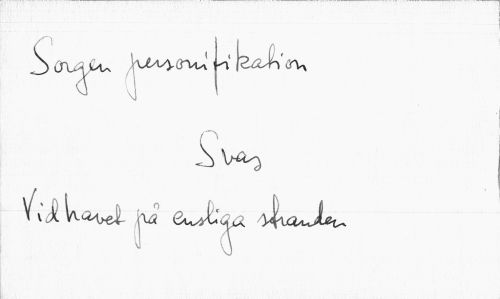 Sorgen personifikation
Svas
Vid havet på ensliga stranden